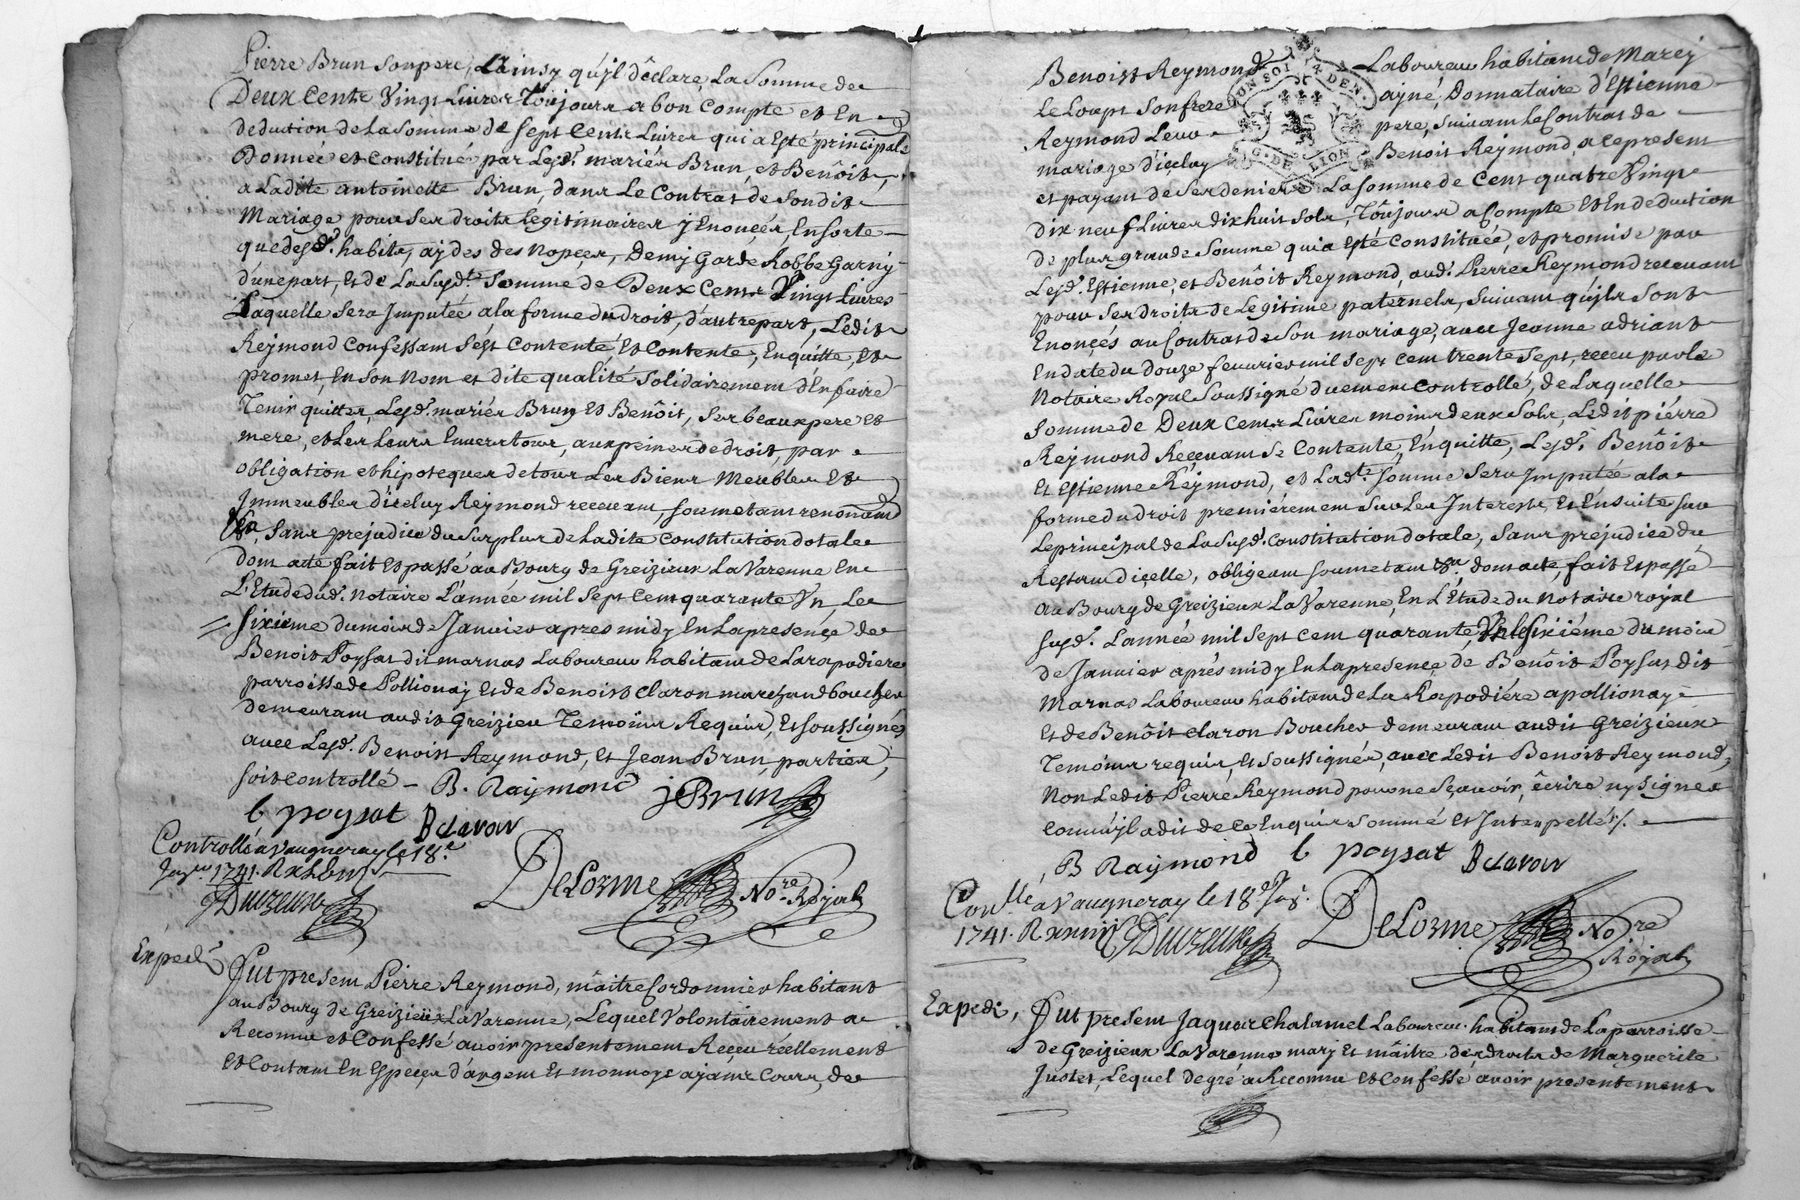 Pierre Brun son pere, Lainsy qu'yl dêclare, La Somme de
Deux Cents Vingt Livres Toujours a bon Compte et En
deduction de La Somme de Sept Cents Livres qui a Esté principale
Donnée et Constitué par Lesd.s mariés Brun, et Benôist,
a Ladite antoinette Brun, dans Le Contrat de Sondit
Mariage pour Ses droits Legitimaires y Enoncés, En sorte
que desd.s habits, aydes des Nopces, Demy Garde Robbe Garny
d'une part, et de La Susd.te Somme de Deux Cents Vingt Livres
Laquelle Sera Imputée a la forme du droit, d'autre part, Ledit
Reymond Confessant s'est Contenté Et Contente, En quitte, et
promet, En Son Nom et dite qualité Solidairement d'En faire
Tenir quittes, Lesd.s mariés Brun Et Benôit, Ses beaux pere et
mere, et Les Leurs Envers tous, aux peines de droit, par
obligation et hipoteques de tous Les Biens Meubles Et
Immeubles d'iceluy Reymond recevant, soumetant renonceant
&a, Sans prejudice du Surplus de Ladite Constitution dotale
dont acte fait Et passé au Bourg de Greizieux La Varenne En
L'Etude dud.t Notaire L'année mil Sept Cent quarante Un, Le
Sixieme du mois de Janvier apres midy En La presence de
Benoit Poysat dit marnas Laboureur habitant de La rapodiere
parroisse de Pollionay et de Benoist Claron marchand boucher
demeurant audit Greizieu Temoins Requis, Et Soussignés
avec Lesd.s Benoist Reymond, et Jean Brun, parties,
soit controllé - B. Raymond j Brun
b poysat B claron
Controllé a Vaugneray le 18.e
1741.
DeLorme No.re Royal
Expedié
Fut present Pierre Reymond, mâitre Cordonnier habitant
au Bourg de Greizieux La Varenne, Lequel Volontairement a
Reconnu et Confessé avoir presentement Reçeu réellement
et Contant En Espeçes d'argent Et monnoye ayant Cours, de
Benoist Reymond Laboureur habitant de Marcy
Le Loup, Son frere ayné, Donnataire d'Estienne
Reymond Leur pere, suivant Le Contrat de
mariage d'içeluy Benoit Reymond, a ce present
et payant de Ses deniers La Somme de Cent quatre Vingt
dix neuf Livres dix huit Sols, Toujours a Compte Et En deduction
de plus grande Somme qui a Esté Constituée, et promise par
Lesd.s Estienne, et Benôit Reymond, aud.t Pierre Reymond recevant
pour Ses droits de Legitime paternels, Suivant qu'yls Sont
Enonçés au Contrat de Son mariage, avec Jeanne adriant
En date du douze fevrier mil Sept Cent trente Sept, receu par Le
Notaire Royal Soussigné duement Controllé, de Laquelle
Somme de Deux Cents Livres moins deux Sols, Ledit piérre
Reymond Recevant Se Contente, En quitte, Lesd.s Benôit
Et Estienne Reymond, et Lad.te Somme Sera Imputée a La
forme du droit premierement Sur Les Interests, Et Ensuite Sur
Le principal de La Susd.e Constitution dotale, Sans préjudice du
Restant d'icelle, obligeant soumetant &a dont acte, fait Et passé
au Bourg de Greizieux La Varenne, En L'Etude du Notaire royal
susd.t L'année mil Sept cent quarante Un le Sixiéme du mois
de Janvier aprés midy En La presence de Benôit Poysat dit
Marnas Laboureur habitant de La Rapodiére a pollionay
Et de Benôit Claron Boucher demeurant audit Greizieux
Temoins requis, Et Soussignés, avec Ledit Benoist Reymond,
Non Ledit Pierre Reymond pour ne Sçavoir, êcrire ny Signer
Comm'yl a dit de Ce Enquis Sommé Et Interpellé ./.
B Raymond b poysat B claron
Con.llé a Vaugneray le 18
1741.
DeLorme No.re
Royal
Expedi,
Fut present Jaques Chalamel Laboureur habitant de La parroisse
de Greizieux La Varenne mary Et mâitre des droits de Marguerite
Justet, Lequel de gré a Reconnu et Confessé avoir presentement